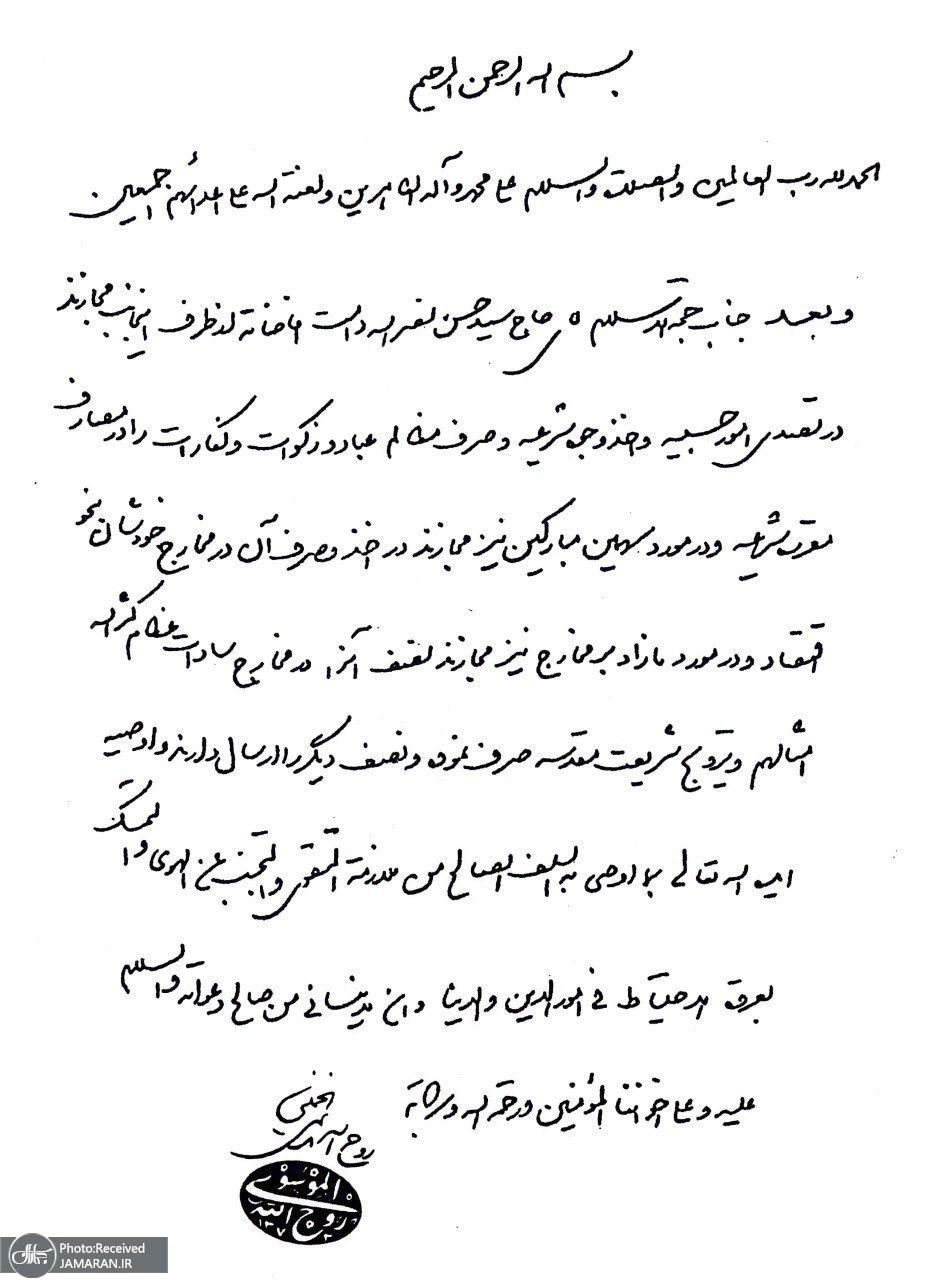 بسم الله الرحمن الرحیم
الحمدلله رب العالمین والصلاة والسلام علی محمد وآله الطاهرین ولعنة الله علی اعدائهم اجمعین
و بعد جناب حجة الاسلام آقای حاج سید حسن نصرالله دامت افاضاته از طرف اینجانب مجازند
در تصدی امور حسبیه و اخذ وجوه شرعیه و صرف مظالم عباد و زکوات و کفارات را در مصارف
مقرره شرعیه و در مورد سهمین مبارکین نیز مجازند در اخذ و صرف آن در مخارج خودشان بنحو
اقتصاد و در مورد مازاد بر مخارج نیز مجازند نصف آنرا در مخارج سادات عظام کثر الله
امثالهم و ترویج شریعت مقدسه صرف نموده و نصف دیگر را ارسال دارند و اوصیه
ایده الله تعالی بما اوصی به السلف الصالح من ملازمة التقوی والتجنب عن الهوی والتمسک
بعروة الاحتیاط فی امور الدین والدنیا وان لاینسانی من صالح دعواته والسلام
علیه وعلی اخواننا المؤمنین ورحمة الله وبرکاته
روح الله الموسوی الخمینی
الموسوی
روح الله
Photo:Received
JAMARAN.IR